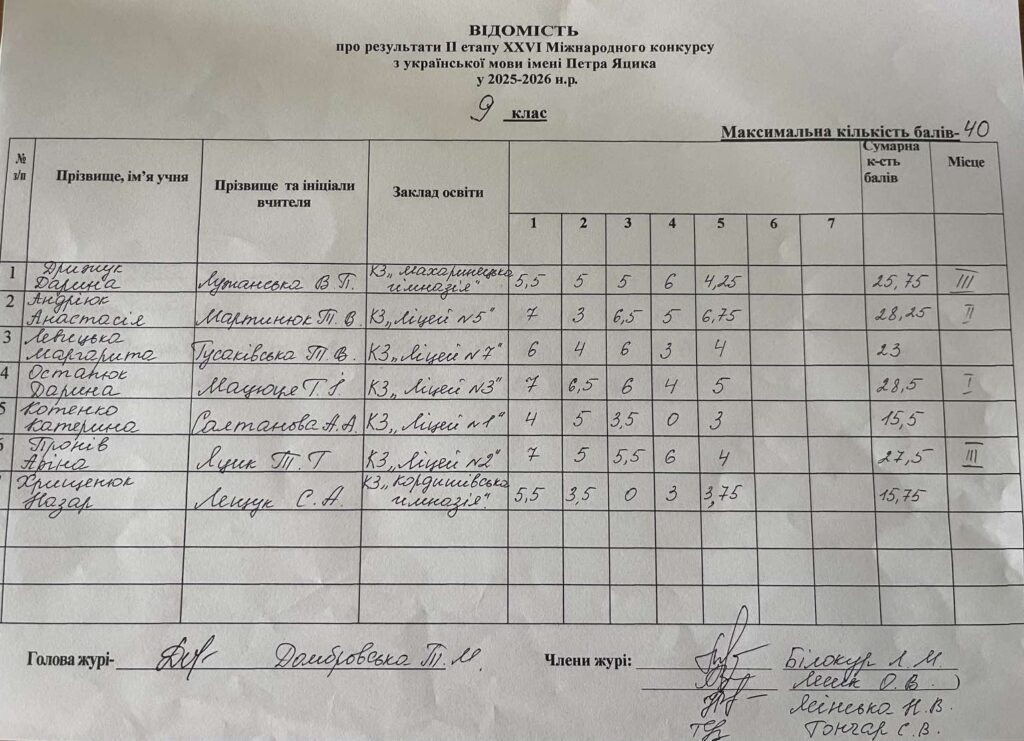 ВІДОМІСТЬ
про результати ІІ етапу XXVI Міжнародного конкурсу
з української мови імені Петра Яцика
у 2025-2026 н.р.
9 клас
Максимальна кількість балів- 40
№ з/п Прізвище, ім’я учня Прізвище та ініціали вчителя Заклад освіти 1 2 3 4 5 6 7 Сумарна к-сть балів Місце
1 Дрижук Дарина Лужанська В П. КЗ „Махаринецька гімназія“ 5,5 5 5 6 4,25 25,75 III
2 Андріюк Анастасія Мартинюк Т. В КЗ „Ліцей №5“ 7 3 6,5 5 6,75 28,25 II
3 Левицька Маргарита Гусаківська Т. В. КЗ „Ліцей №7“ 6 4 6 3 4 23
4 Остапюк Дарина Т. І. КЗ „Ліцей №3“ 7 6,5 6 4 5 28,5 I
5 Котенко Катерина Салтанова А. А. КЗ „Ліцей №1“ 4 5 3,5 0 3 15,5
6 Пронів Аріна Яцик Т. Т КЗ „Ліцей №2“ 7 5 5,5 6 4 27,5 III
Хрищенюк Назар Лещук С. А. КЗ „Кордишівська гімназія“. 5,5 3,5 0 3 3,75 15,75
Голова журі- Домбровська Т. М.
Члени журі: Білокур Л. М.
О. В.
Ясінська Н. В.
Гончар С. В.